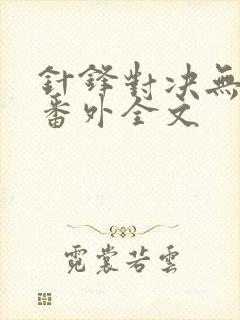 針鋒對決無
番外全文
霓裳若雲